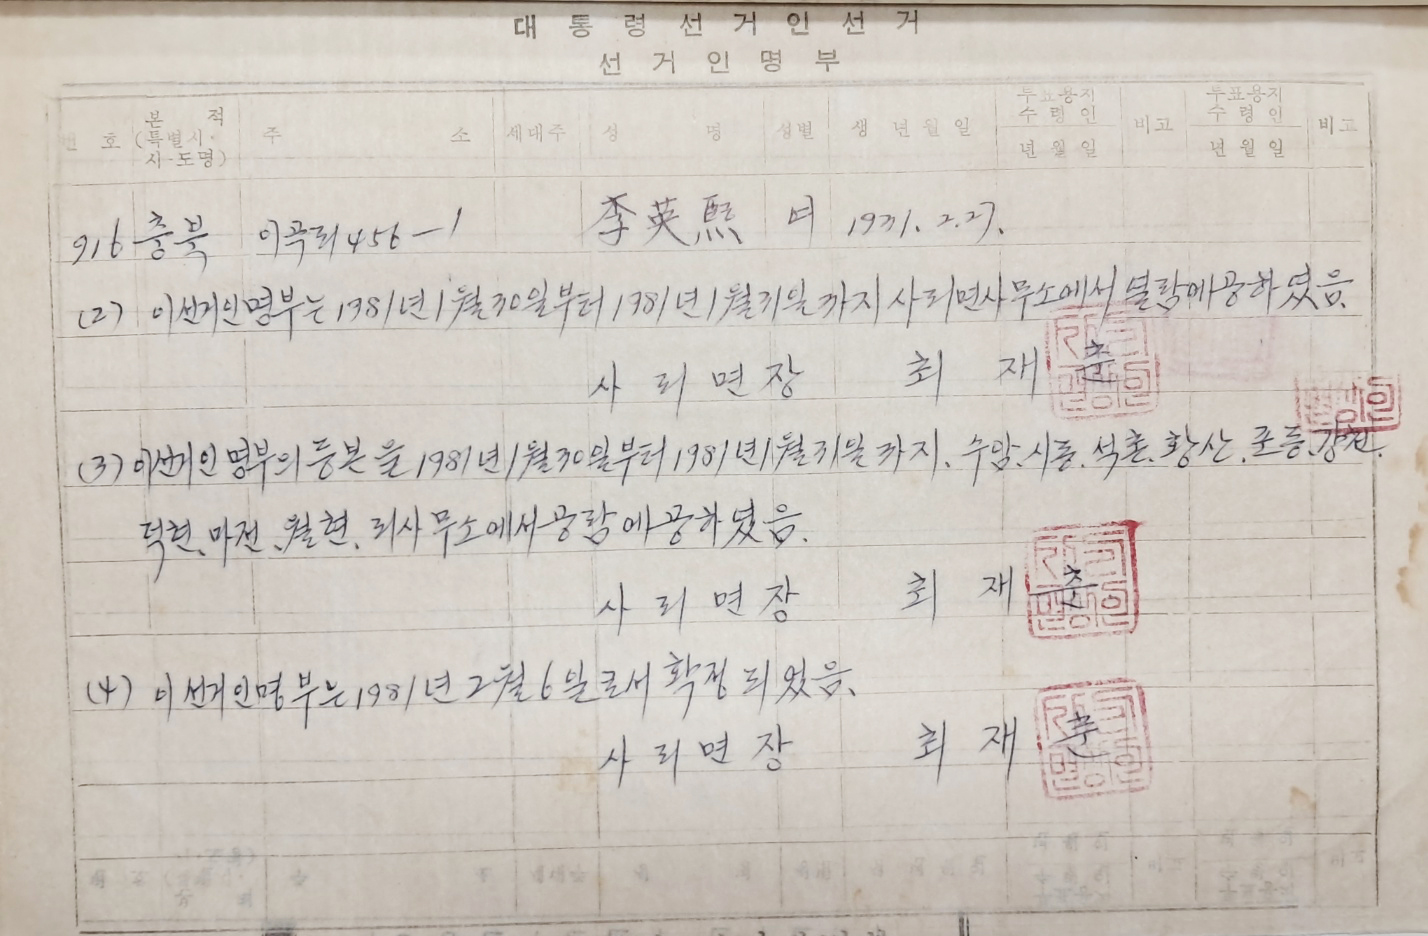 대통령선거인선거
선거인명부
번호 본적 (특별시·시·도명) 주소 세대주 성명 성별 생년월일 투표용지 수령인 년월일 비고 투표용지 수령인 년월일 비고
916 충북 이곡리 456-1 李英熙 여 1931. 2. 27.
(2) 이 선거인명부는 1981년 1월 30일부터 1981년 1월 31일까지 사리면사무소에서 열람에 공하였음.
사리면장 최재
(3) 이 선거인명부의 등본을 1981년 1월 30일부터 1981년 1월 31일까지. 수암. 시동. 석촌. 황산.
덕현. 마전. 월현. 리사무소에서 공람에 공하였음.
사리면장 최재
(4) 이 선거인명부는 1981년 2월 6일로서 확정되었음.
사리면장 최재